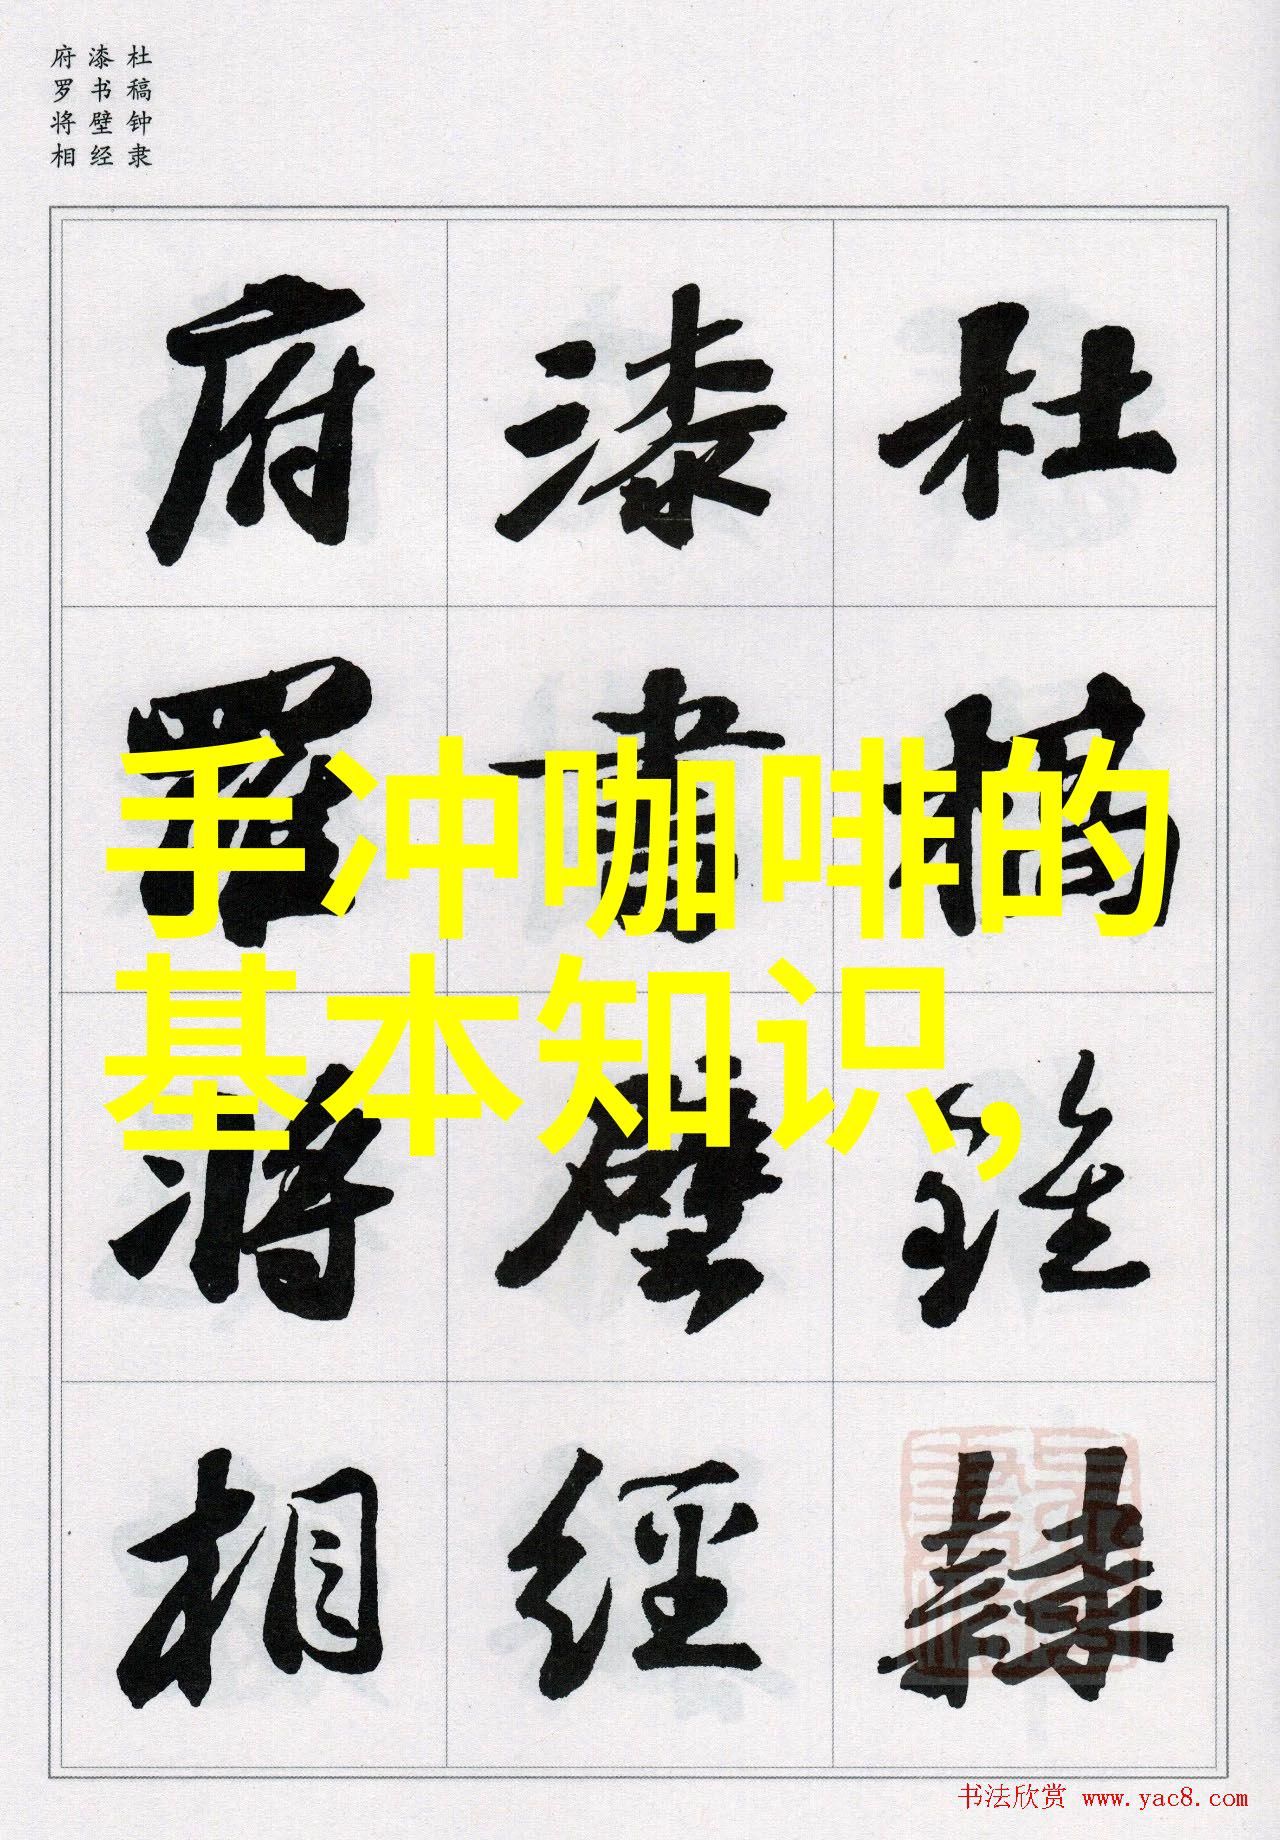 杜稿钟隶
漆书壁经
府罗将相
杜稿鍾隸
漆書壁經
府羅將相
手冲咖啡的
基本知识,
书法欣赏 www.yac8.com